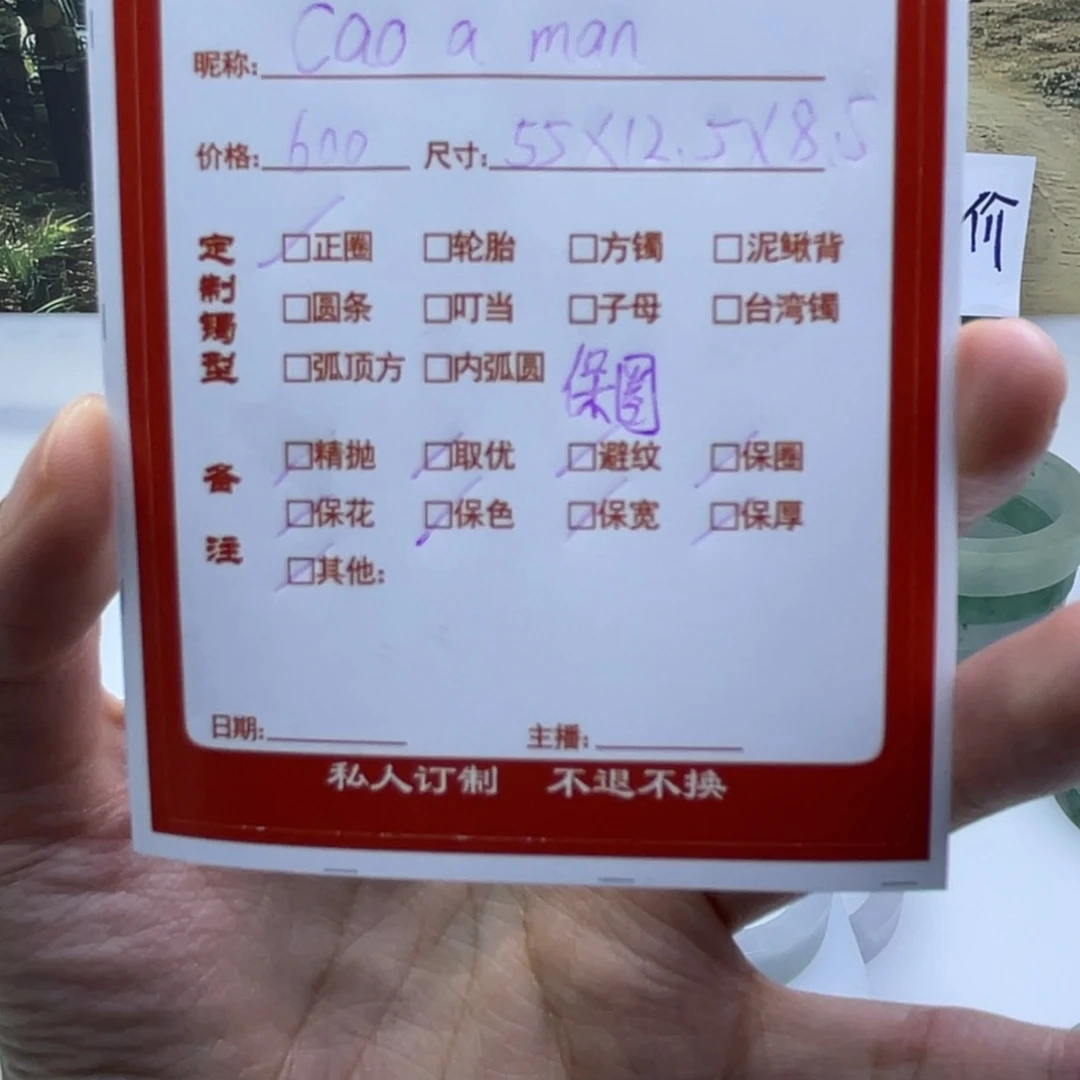 昵称: Cao a man
价格: 600 尺寸: 55X12.5X8.5
定制镯型
□正圈 □轮胎 □方镯 □泥鳅背
□圆条 □叮当 □子母 □台湾镯
□弧顶方 □内弧圆 保圈
备注
□精抛 □取优 □避纹 □保圈
□保花 □保色 □保宽 □保厚
□其他:
日期: 主播:
私人订制 不退不换
价